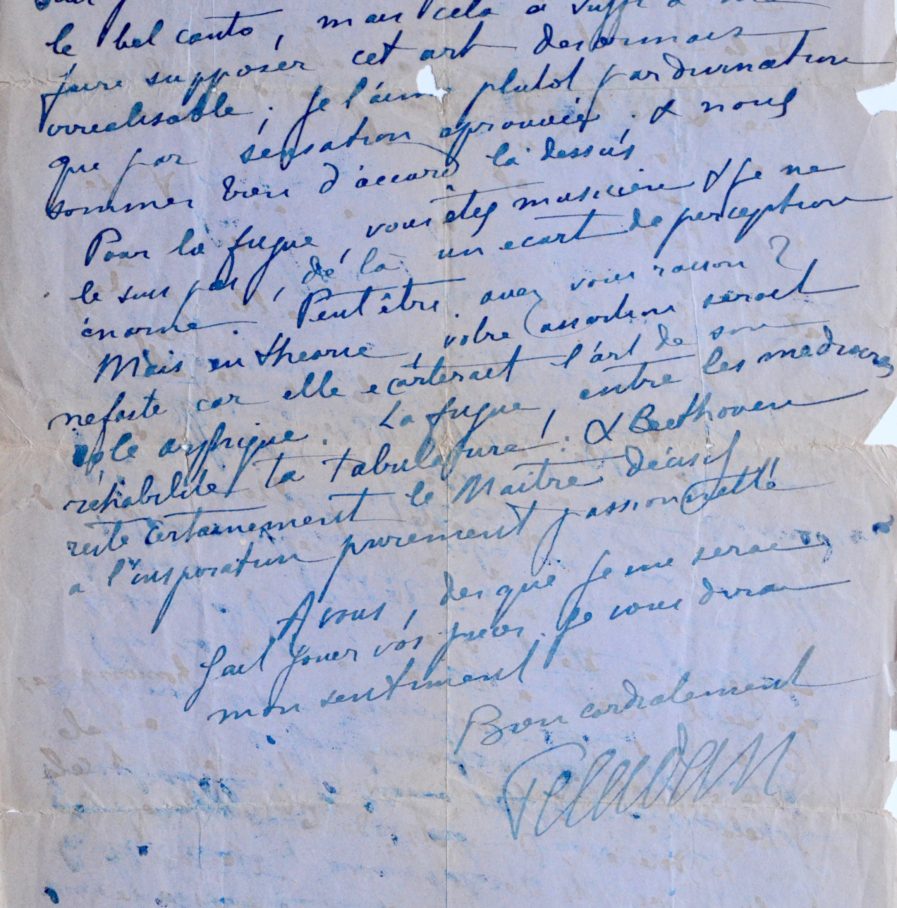 le bel canto, mais cela a suffi à me
faire supposer cet art désormais
irréalisable; je l'aime plutôt par divination
que par sensation eprouvée. & nous
sommes bien d'accord là dessus
Pour la fugue, vous êtes musicien & je ne
le suis pas, de là un ecart de perception
énorme. Peut être avez vous raison?
Mais en theorie, votre assertion serait
nefaste car elle ecarterait l'art de son
La fugue, entre les mediocres
réhabilite ta tabulature! & Beethoven
reste certainement le Maitre décisif
a l'inspiration purement passionnelle
A vous, des que je me serai
fait jouer vos je vous dirai
mon sentiment
Bien cordialement
Peladan